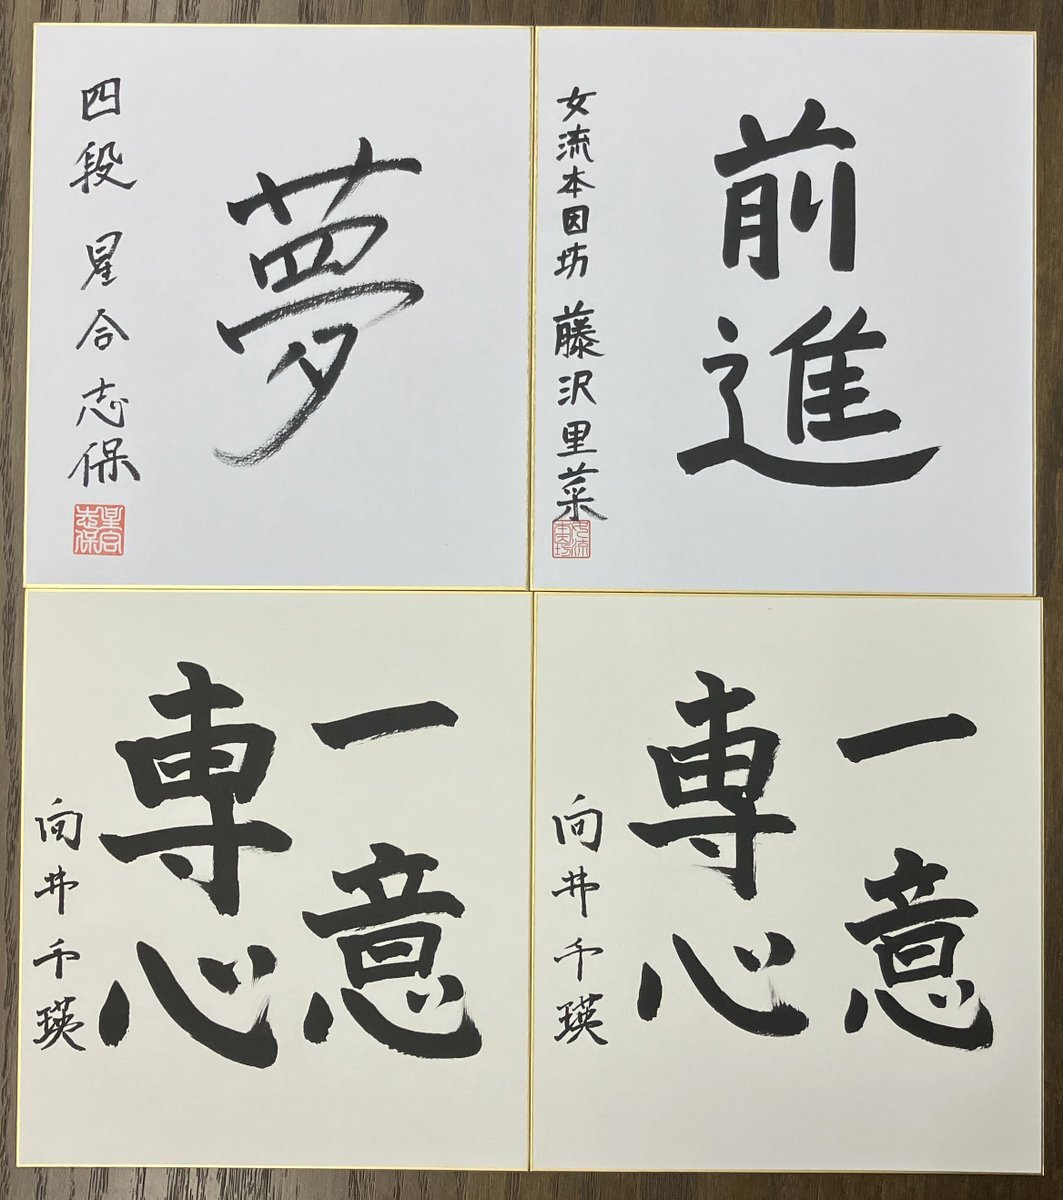 夢
四段 星合志保
星合志保
前進
女流本因坊 藤沢里菜
一意
専心
向井千瑛
一意
専心
向井千瑛